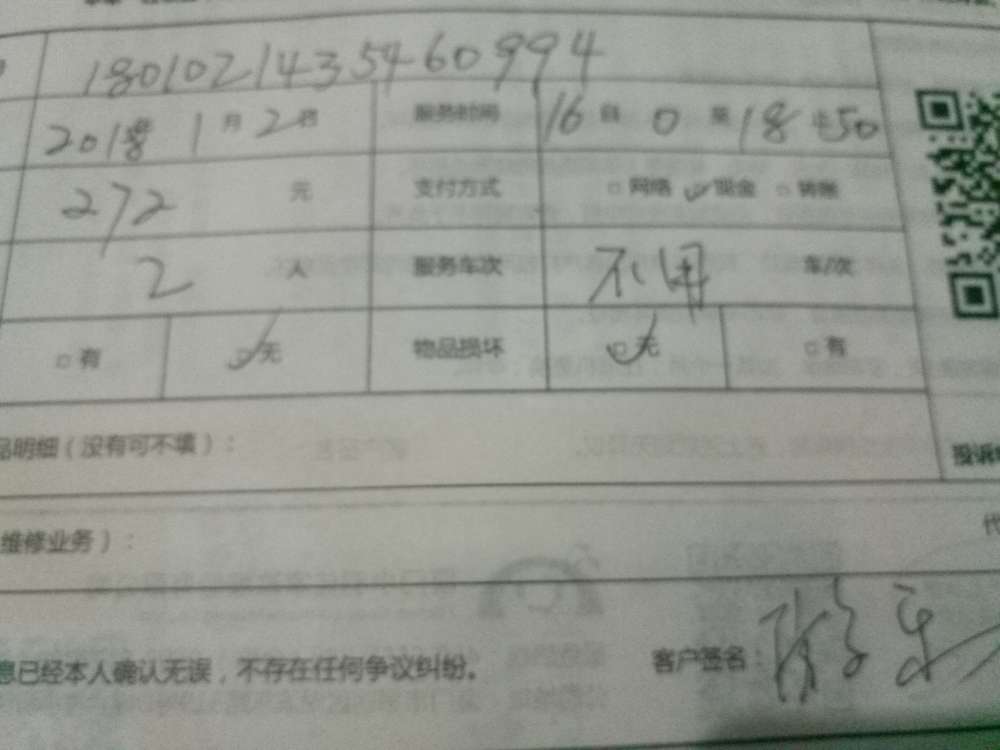 180102143546​0994
2018年1月2日 服务时间 16自0至18止50
272元 支付方式 □网络 ☑现金 □转账
2人 服务车次 不用 车/次
□有 ☑无 物品损坏 ☑无 □有
品明细(没有可不填):
投诉
维修业务):
代
息已经本人确认无误,不存在任何争议纠纷。 客户签名: